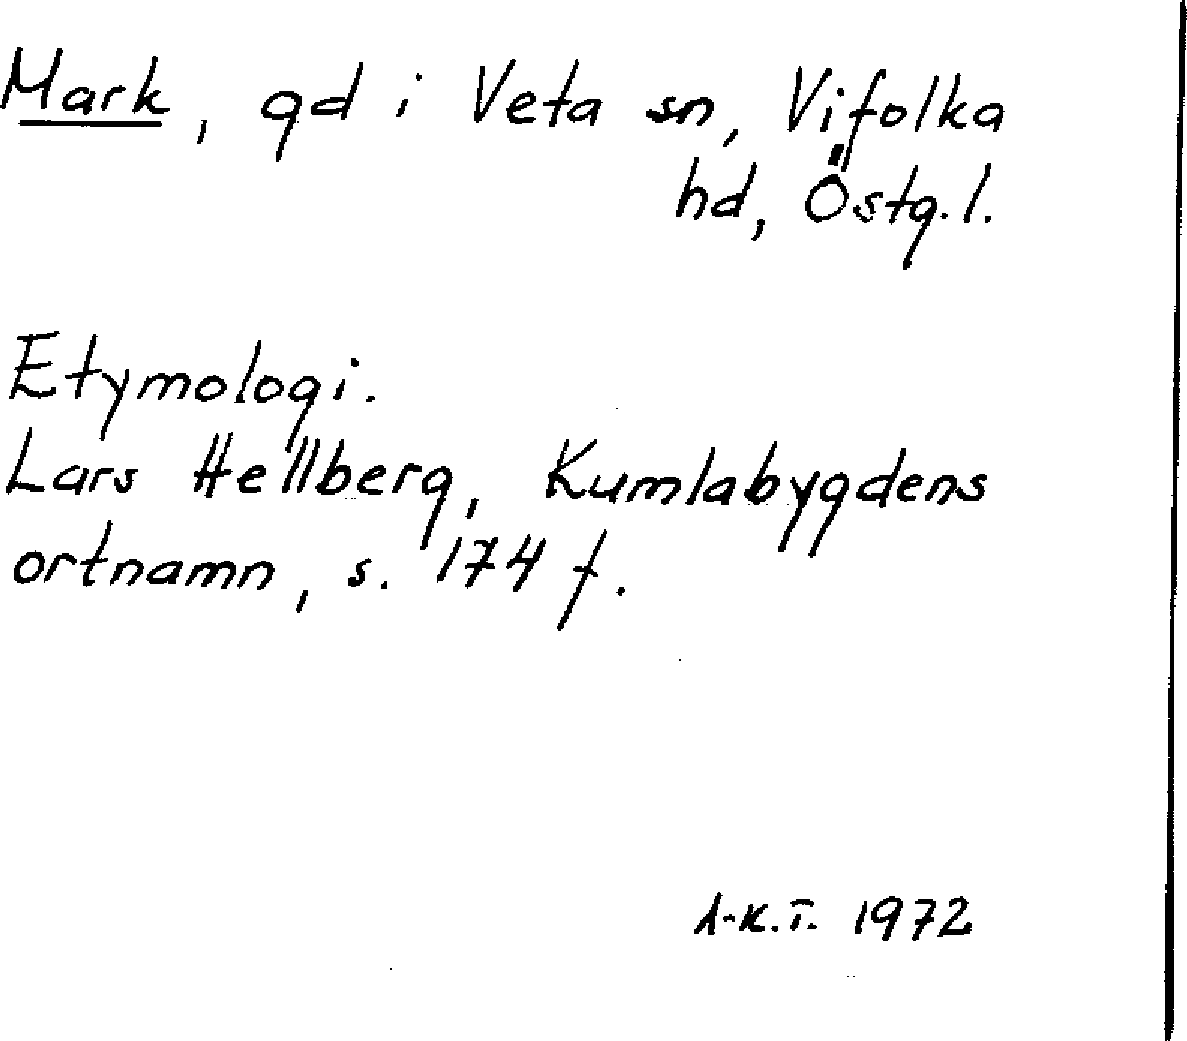 Mark, gd i Veta sn, Vifolka
hd, Östg.l.
Etymologi.
Lars Hellberg, Kumlabygdens
ortnamn, s. 174 f.
A-K.T. 1972